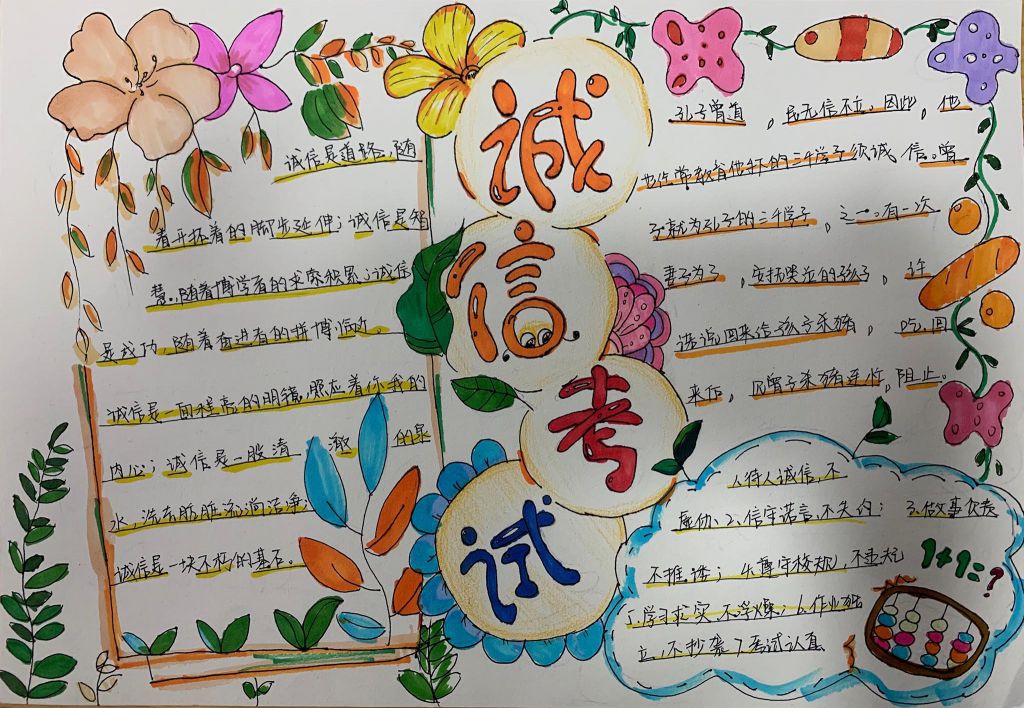 诚信考试
诚信是道路，随
着开拓者的脚步延伸；诚信是智
慧，随着博学者的求索积累；诚信
是成功，随着奋进者的拼搏临近。
诚信是一面程亮的明镜，照应着你我的
内心；诚信是一股清 澈 的泉
水，洗去肮脏流淌洁净；
诚信是一块不朽的基石。
孔子曾道 ，民无信不立。因此，他
也 常教育他 的三千学子须诚 信。曾
子就为孔子的三千学子 ，之一。有一次
妻子为了 ，安抚哭泣的孩子 ，许
诺说回来给孩子杀猪 ，吃，回
来后 ，见曾子杀猪连忙，阻止。
1.待人诚信，不
虚伪：2、信守诺言，不失约： 3.做事负责
不推诿； 4.遵守校规，不违纪
5.学习求实，不浮燥；6.作业独
立，不抄袭 7考试认真
1+1=?